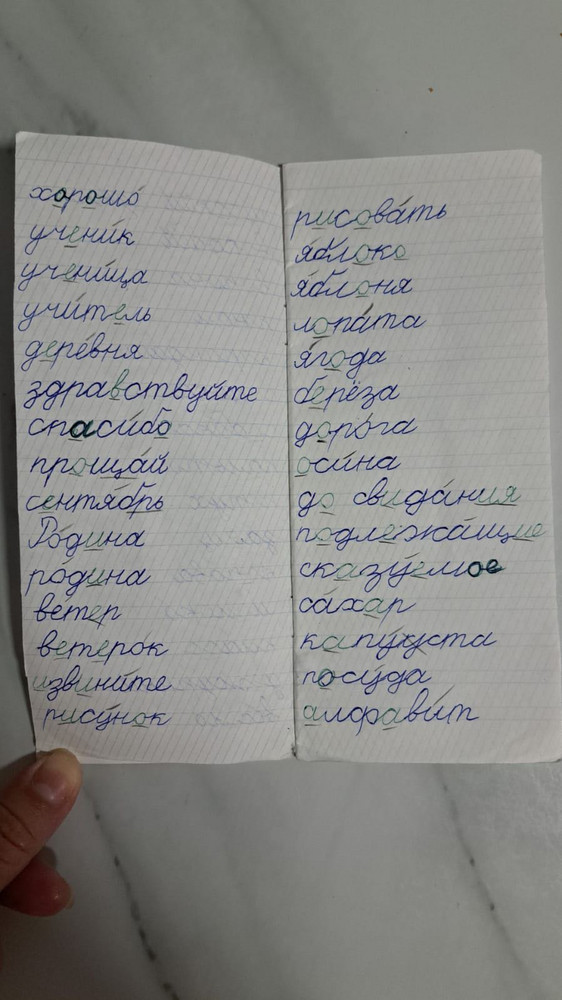 хорошо́
учени́к
учени́ца
учи́тель
дере́вня
здравствуйте
спаси́бо
проща́й
сентя́брь
Ро́дина
ро́дина
ве́тер
ветеро́к
извини́те
рису́нок
рисова́ть
я́блоко
я́блоня
лопа́та
я́года
берёза
доро́га
оси́на
до свида́ния
подлежа́щие
сказу́емое
са́хар
капу́хуста
посу́да
алфави́т